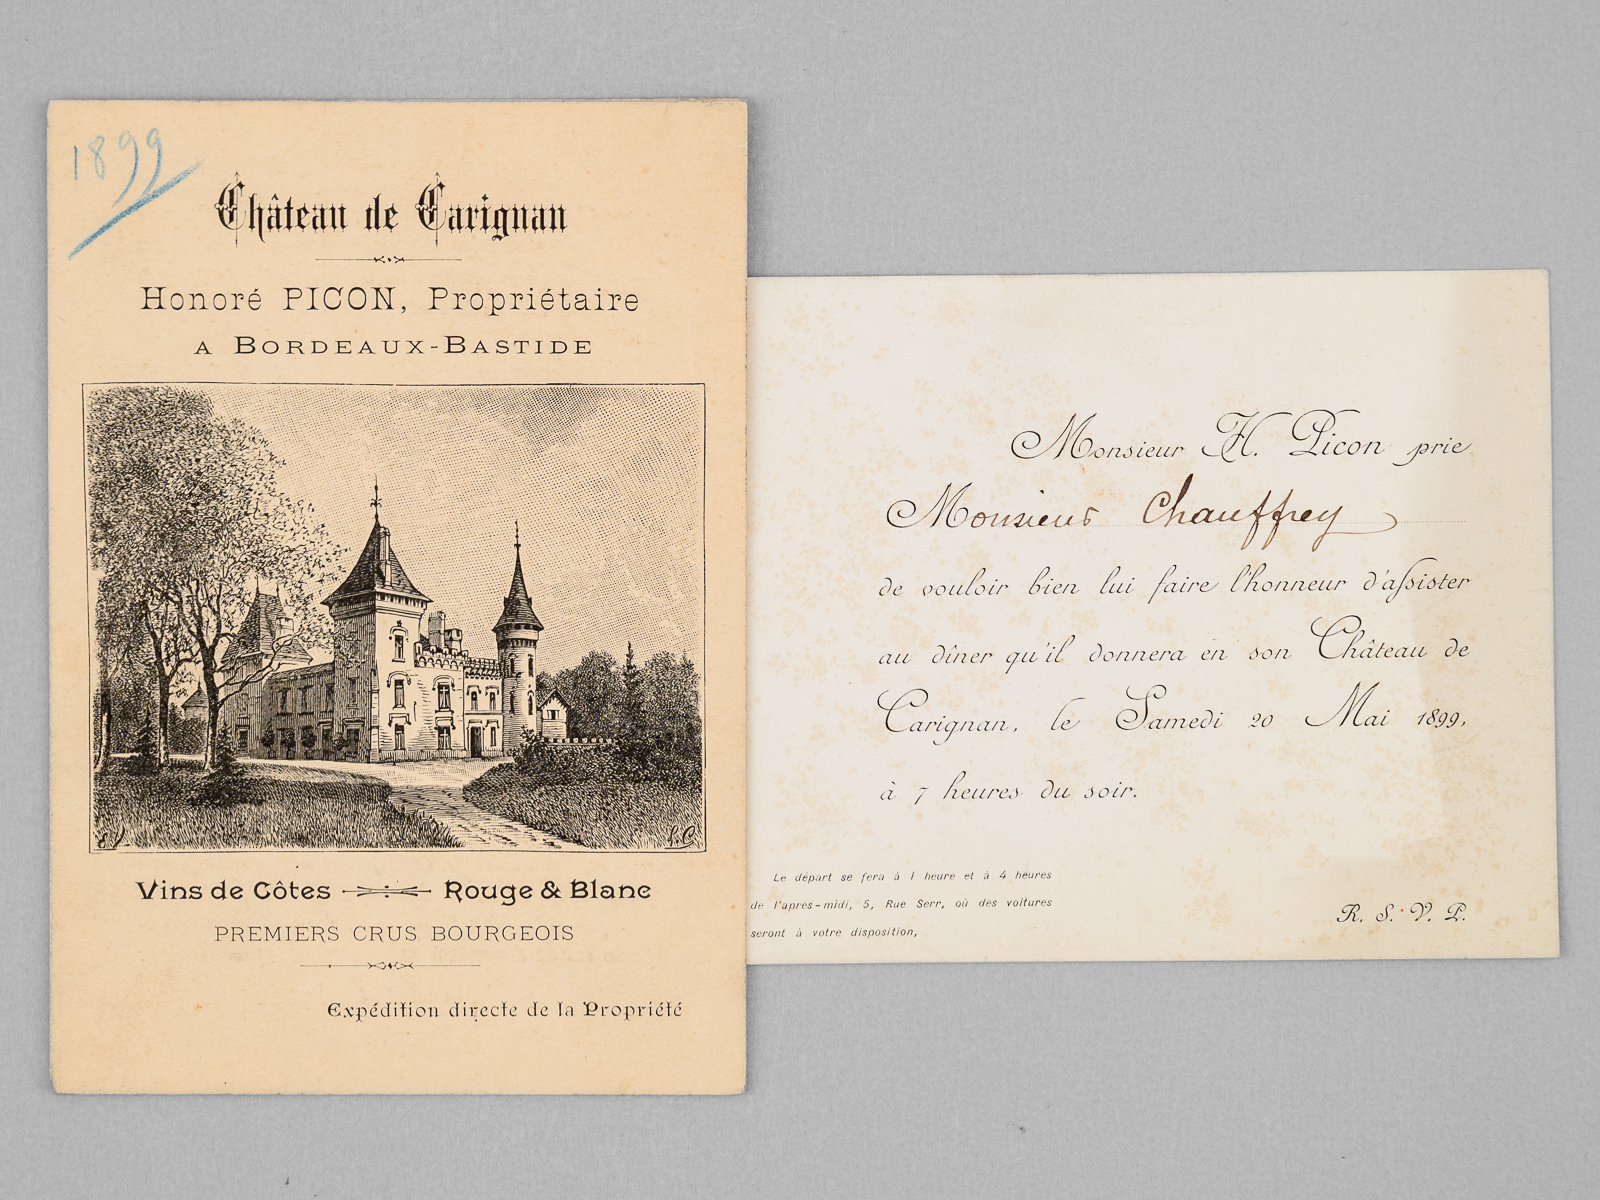 1899
Château de Carignan
Honoré PICON, Propriétaire
A BORDEAUX-BASTIDE
Vins de Côtes Rouge & Blanc
PREMIERS CRUS BOURGEOIS
Expédition directe de la Propriété
Monsieur H. Picon prie
Monsieur Chauffrey
de vouloir bien lui faire l'honneur d'assister
au dîner qu'il donnera en son Château de
Carignan, le Samedi 20 Mai 1899,
à 7 heures du soir.
Le départ se fera à 1 heure et à 4 heures
de l'après-midi, 5, Rue Serr, où des voitures
seront à votre disposition,
R. S. V. P.